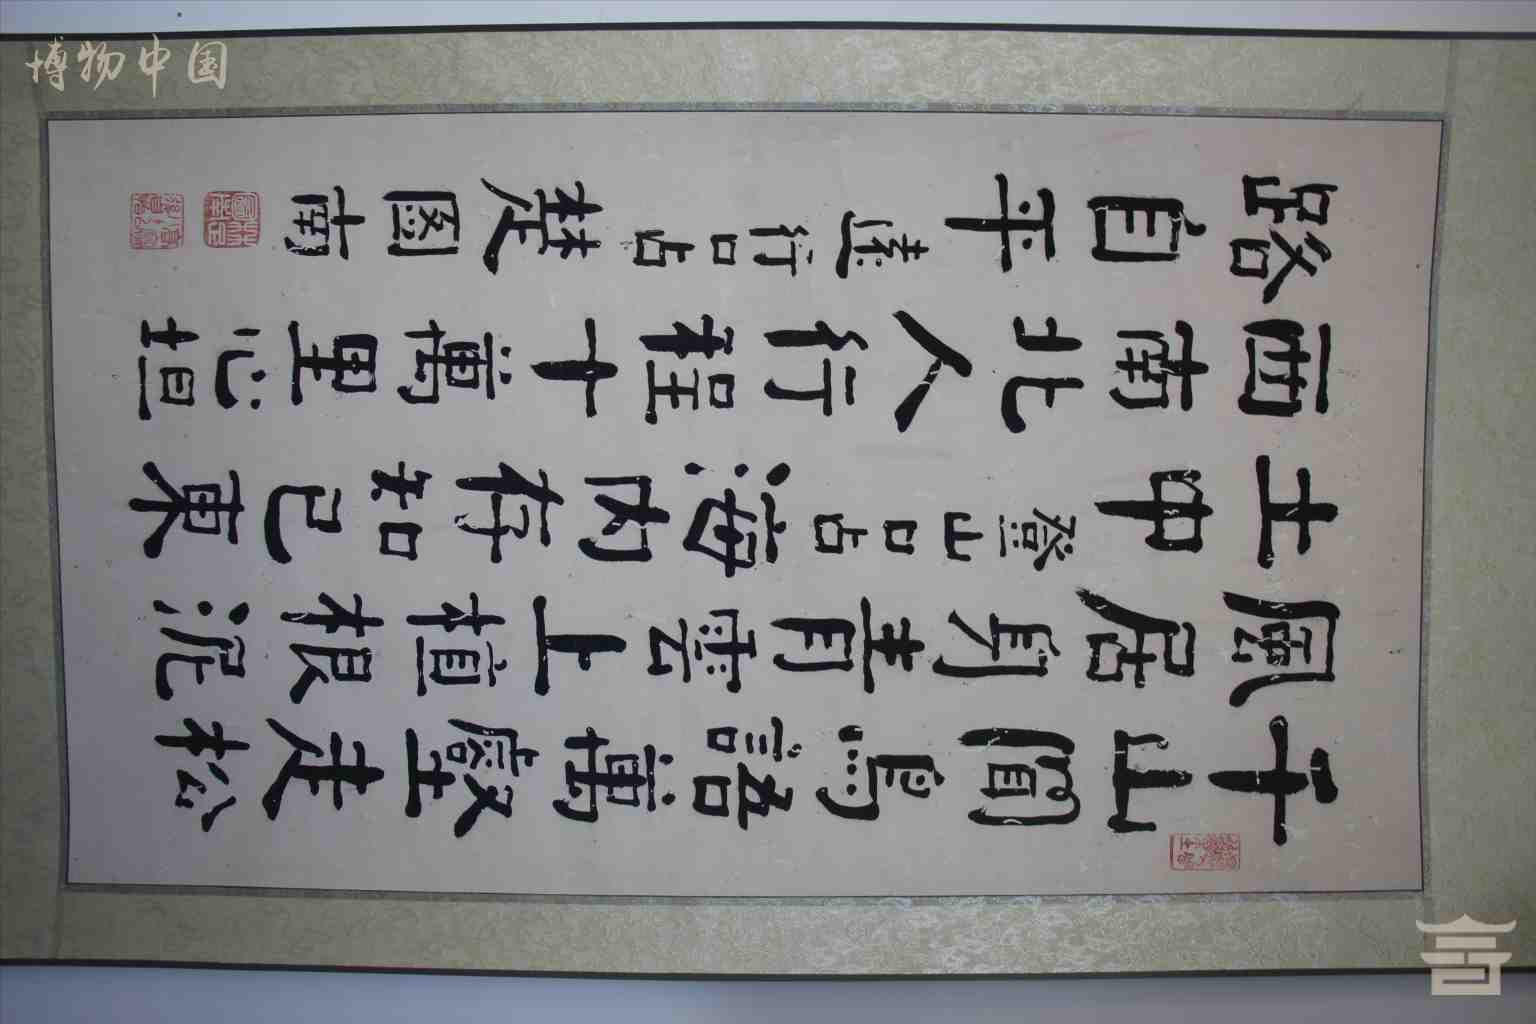 博物中国
千山聞鳥語萬壑走松
風居身青雲上植根泥
土中登山口占海内存知己東
西南北人行程十萬里心坦
路自平遠行口占楚圖南